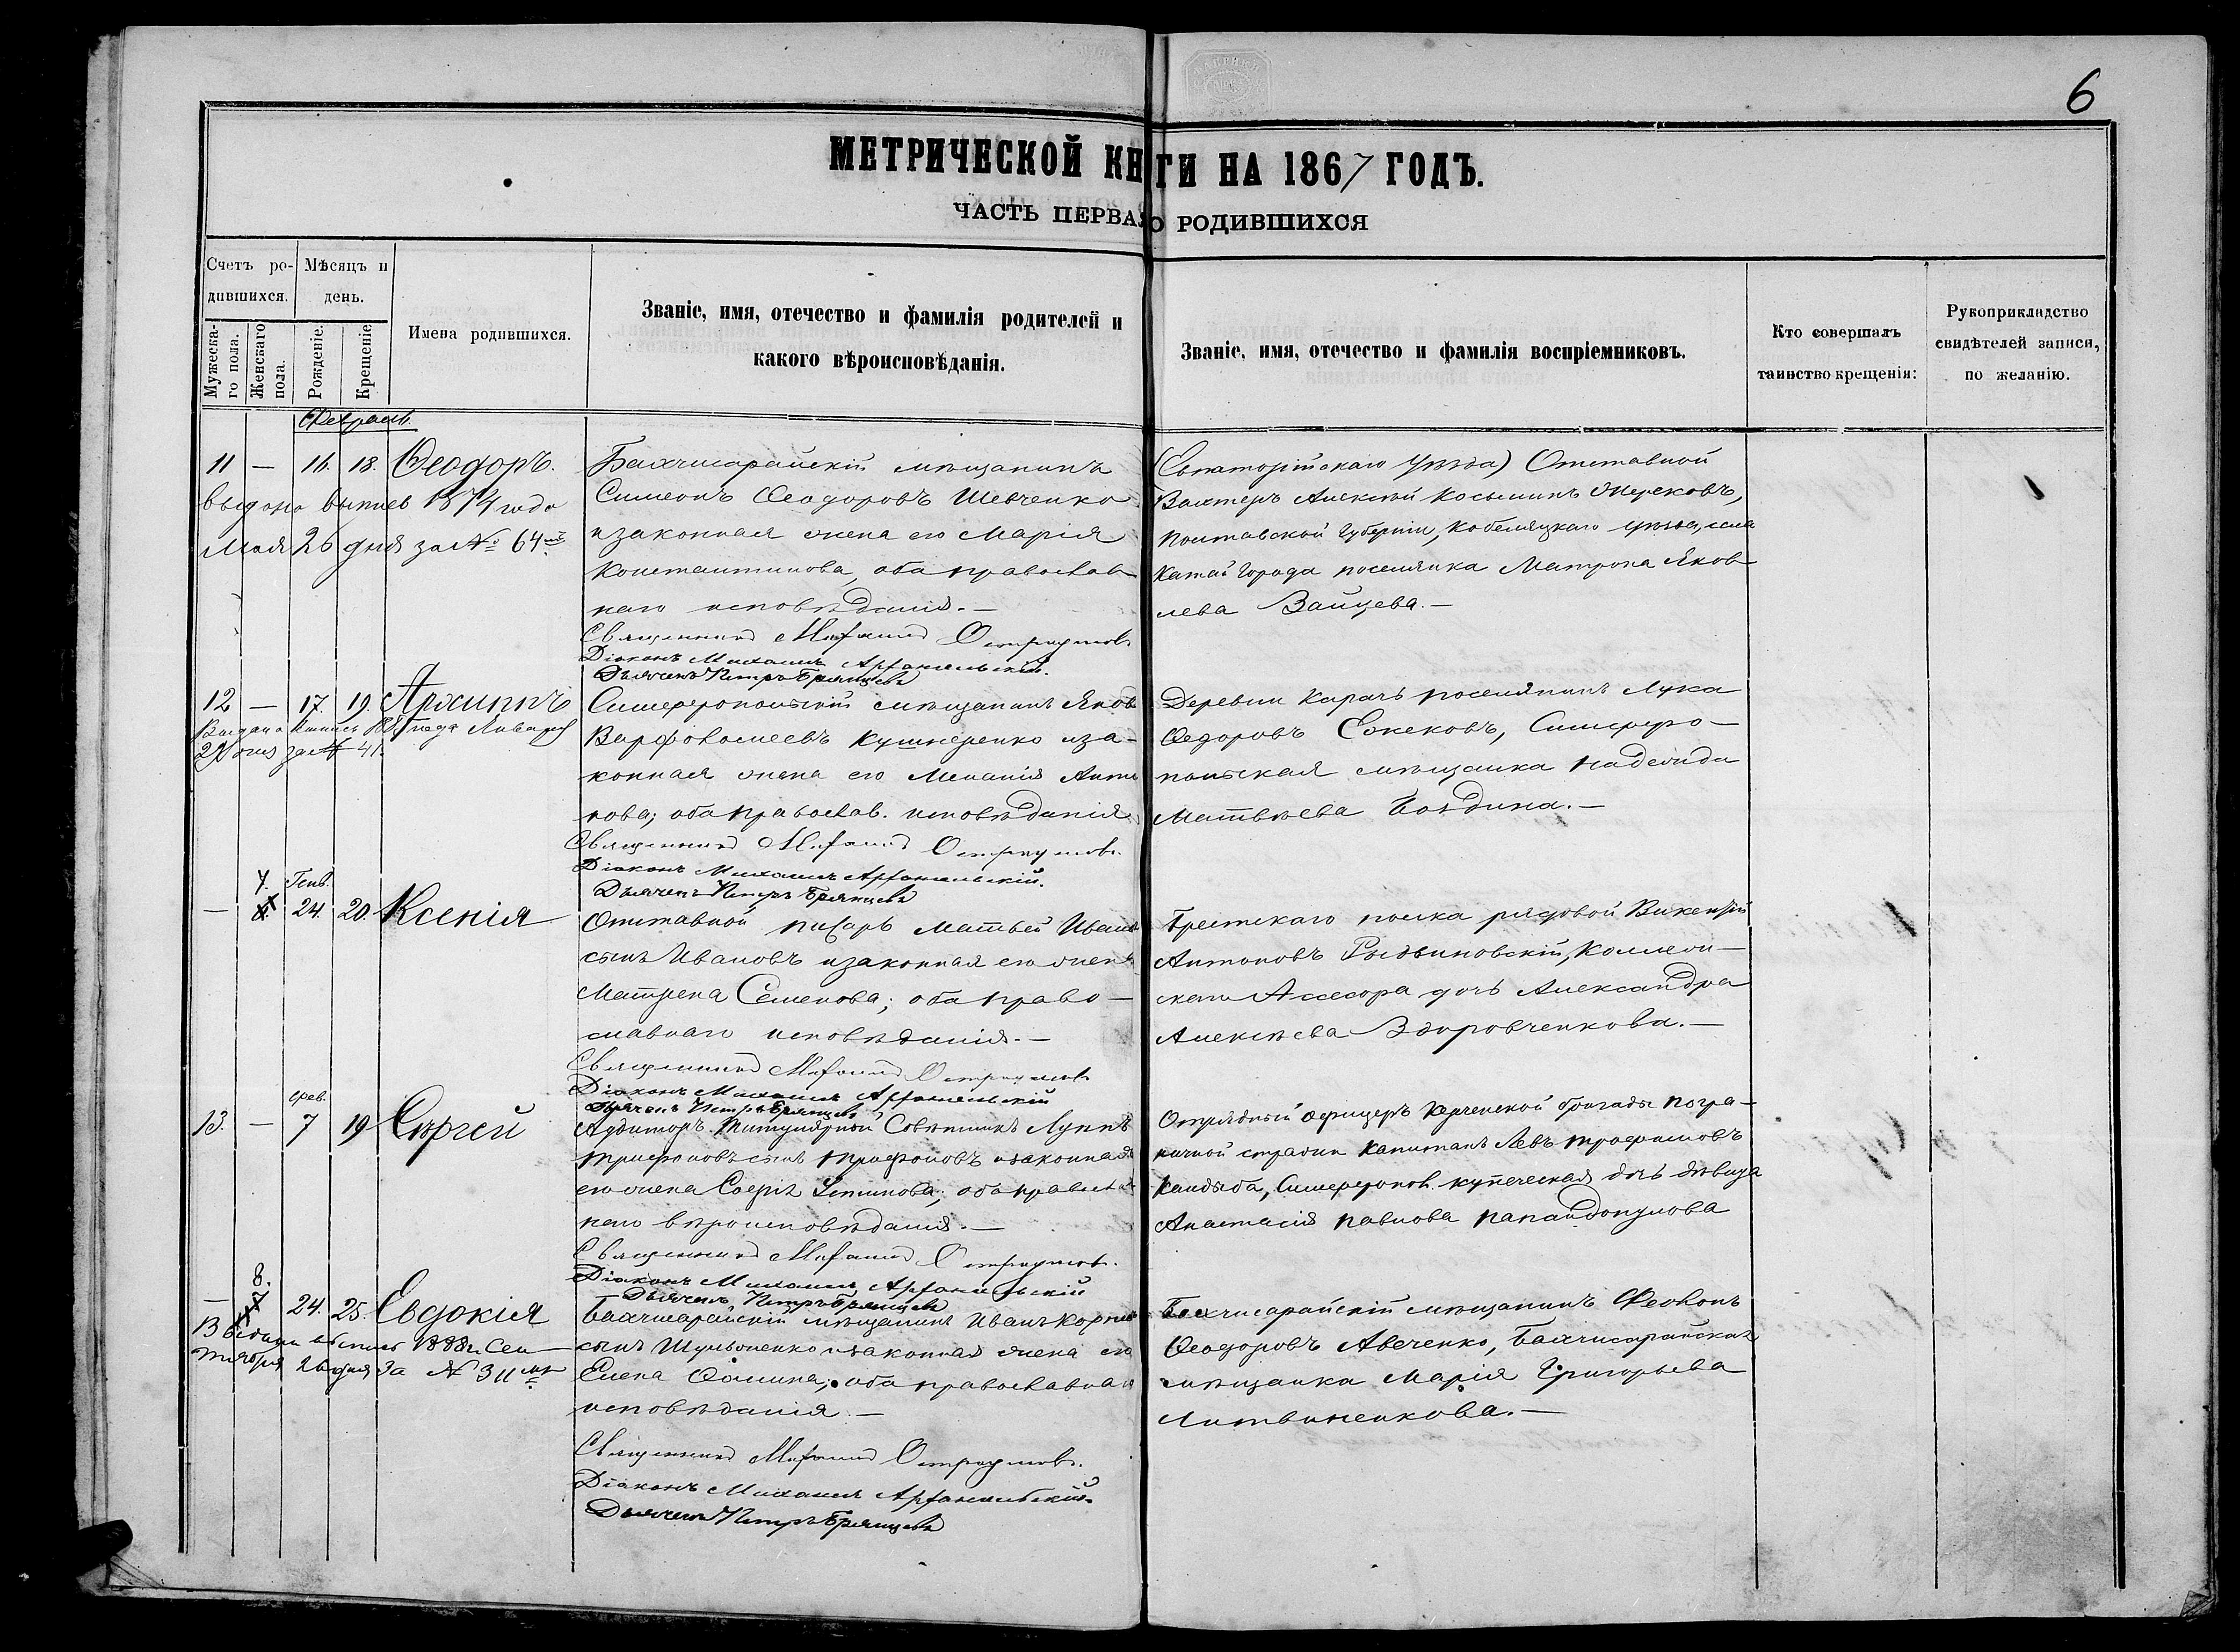 6
МЕТРИЧЕСКОЙ КНИГИ НА 1867 ГОДЪ.
ЧАСТЬ ПЕРВАЯ О РОДИВШИХСЯ
Счетъ ро-
дившихся.
Мужеска-
го пола.
Женскаго
пола.
Мѣсяцъ и
день.
Рожденіе.
Крещеніе
Имена родившихся.
Званіе, имя, отечество и фамилія родителей и
какого вѣроисповѣданія.
Званіе, имя, отечество и фамилія воспріемниковъ.
Кто совершалъ
таинство крещенія:
Рукоприкладство
свидѣтелей записи,
по желанію.
Февраль.
11 — 16. 18. Ѳеодоръ.
выдана выпись 1874 года
Мая 26 дня за № 64
Бахчисарайскій мѣщанинъ
Симеонъ Ѳеодоровъ Шевченко
и законная жена его Марія
Константинова, оба православ-
наго исповѣданія.—
Священникъ
Діаконъ Михаилъ Архангельскій.
Дьячекъ Петръ Брянцевъ
(Евпаторійскаго Уѣзда) Отставной
Вахтеръ Алексѣй Косьминъ
Полтавской Губерніи, Кобеляцкаго уѣзда, села
Китай Города поселянка Матрона Яков-
лева Зайцева.—
12 — 17. 19. Архиппъ
Выдана выпись года Января
дня за № 41.
Симферопольскій мѣщанинъ Яковъ
Варфоломеевъ Кушнеренко и за-
конная жена его Меланія Анто
нова; оба православ. исповѣданія
Священникъ
Діаконъ Михаилъ Архангельскій.
Дьячекъ Петръ Брянцевъ
Деревни Карачъ поселянинъ Лука
Ѳедоровъ Ежековъ, Симферо-
польская мѣщанка Надежда
Матвѣева Болдина.—
7. Генв.
— 24. 20. Ксенія
Отставной писарь Матвей Иванъ
сынъ Ивановъ и законная его жена
Матрена Семенова; оба право-
славнаго исповѣданія.—
Священникъ
Діаконъ Михаилъ Архангельскій
Дьячекъ Петръ Брянцевъ
Брестскаго полка рядовой Викентій
Антоновъ Коллеж-
скаго Ассесора дочь Александра
Алексѣева Здоровченкова.—
фев.
13. — 7 19 Сергей
Аудиторъ Титулярный Совѣтникъ Луппъ
Трифоновъ сынъ Трифоновъ и законная
его жена Софія оба православ
наго вѣроисповѣданія.—
Священникъ
Діаконъ Михаилъ Архангельскій
Дьячекъ Петръ Брянцевъ
Отрядный офицеръ Керченской бригады погра-
ничной стражи Капитанъ Левъ Трофимовъ
Кандыба, Симферопол. купеческая дочь дѣвица
Анастасія Павлова Папандопулова
8.
— 24. 25. Евдокія
Выдана выпись 1888 г. Сен-
тября 26 дня за № 311
Бахчисарайскій мѣщанинъ Иванъ Корнил
сынъ и законная жена его
Елена Ѳомина; оба православнаго
исповѣданія.—
Священникъ
Діаконъ Михаилъ Архангельскій.
Дьячекъ Петръ Брянцевъ
Бахчисарайскій мѣщанинъ
Ѳеодоровъ Авеченко, Бахчисарайская
мѣщанка Марія Григорьева
Литвиненкова.—